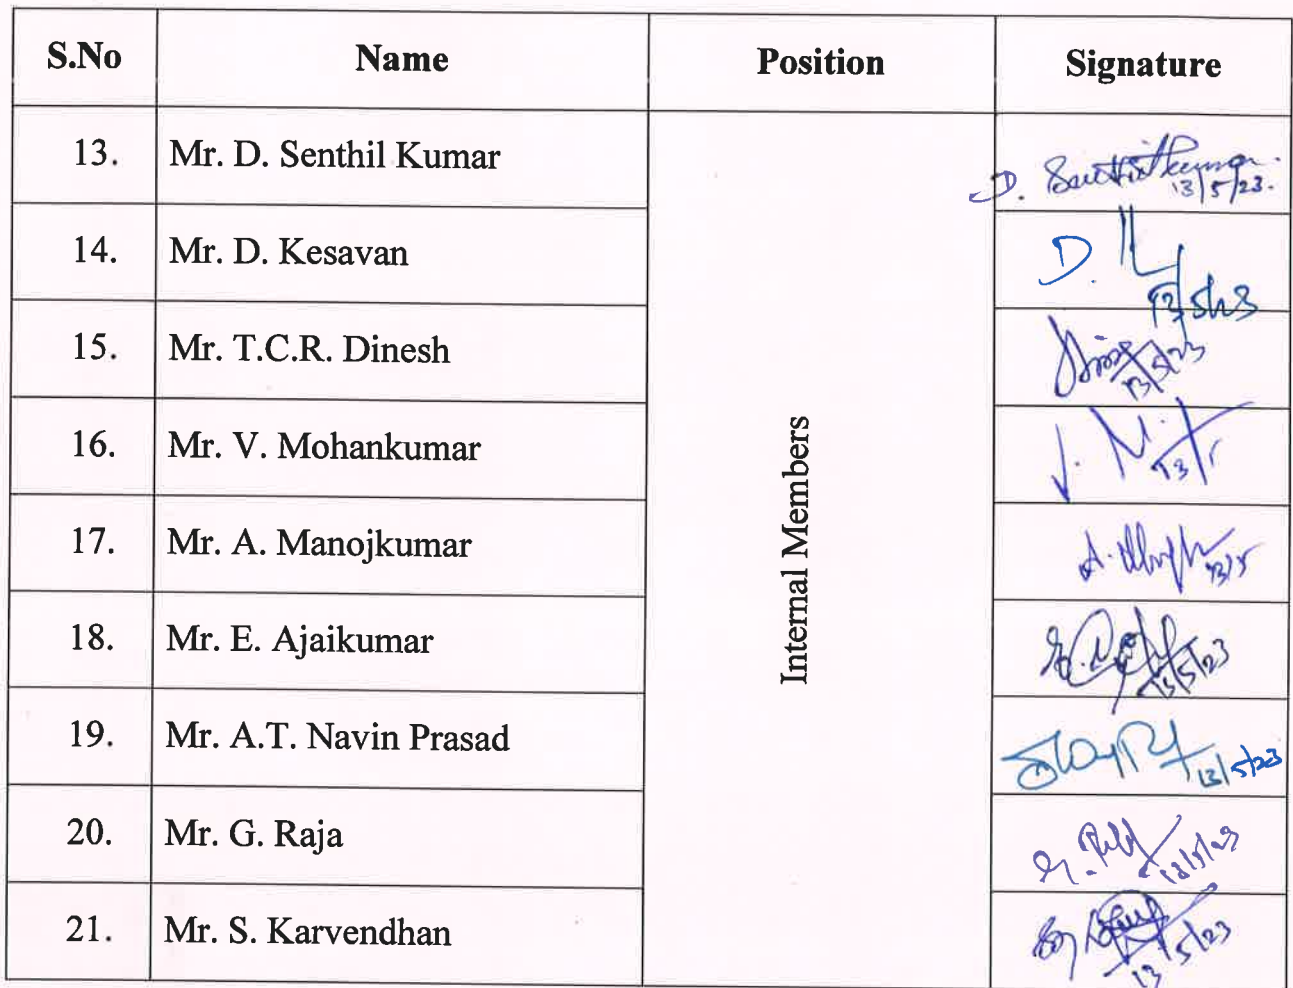 S.No Name Position Signature
13. Mr. D. Senthil Kumar D. Senthilkumar 13/5/23.
14. Mr. D. Kesavan D. 13/5/23
15. Mr. T.C.R. Dinesh 13/5/23
16. Mr. V. Mohankumar 13/5
Internal Members
17. Mr. A. Manojkumar A. 13/5
18. Mr. E. Ajaikumar E. 13/5/23
19. Mr. A.T. Navin Prasad 13/5/23
20. Mr. G. Raja G. 13/5/23
21. Mr. S. Karvendhan 13/5/23